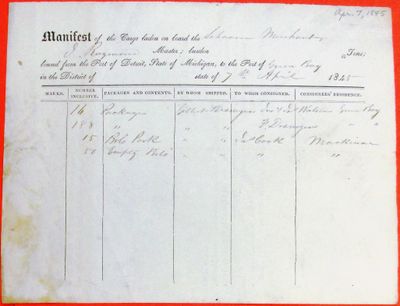 Apr. 7, 1845
Manifest of, the Cargo laden on board the Schooner Merchant
Master; burden Tons;
bound from the Port of Detroit, State of Michigan, to the Port of Green Bay
in the District of state of 7th April 1845
MARKS. NUMBER INCLUSIVE. PACKAGES AND CONTENTS. BY WHOM SHIPPED. TO WHOM CONSIGNED. CONSIGNEES' RESIDENCE.
14 Packages Green Bay
188 " " " "
15 Bbls Pork " " Cook Mackinac
50 Empty Bbls " " " "